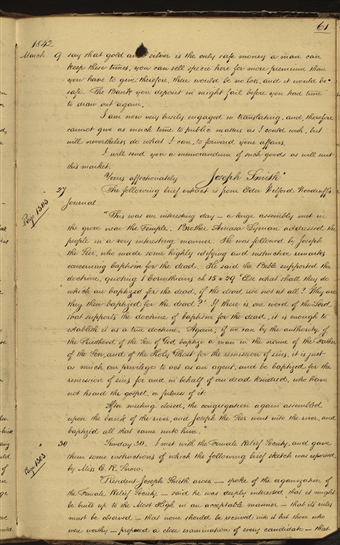 61
1842
March 9 say that gold and silver is the only safe money a man can
keep these times, you can sell specie here for more premium than
you have to give; therefore, there would be no loss, and it would be
safe. The Bank you deposit in might fail before you had time
to draw out again.
I am now very busily engaged in translating, and therefore
cannot give as much time to public matters as I could wish, but
will nevertheless do what I can to forward your affairs.
I will send you a memorandum of such goods as will suit
this market.
Yours affectionately
Joseph Smith"
27 The following brief extract is from Elder Wilford Woodruff's
Journal
"This was an interesting day – a large assembly met in
the grove near the Temple. Brother Amasa Lyman addressed the
people in a very interesting manner. He was followed by Joseph
the Seer, who made some highly edifying and instructive remarks
concerning baptism for the dead. He said the Bible supported the
doctrine, quoting 1 Corinthians ch 15 v 29 "Else what shall they do
which are baptized for the dead, if the dead rise not at all? Why are
they then baptized for the dead?" If there is one word of the Lord
that supports the doctrine of baptism for the dead, it is enough to
establish it as a true doctrine. Again; if we can by the authority of
the Priesthood of the Son of God baptize a man in the name of the Father
of the Son, and of the Holy Ghost for the remission of sins, it is just
as much our privilege to act as an agent, and be baptized for the
remission of sins for and in behalf of our dead kindred, who have
not heard the gospel, or fulness of it.
After meeting closed, the congregation again assembled
upon the bank of the river, and Joseph the Seer went into the river and
baptized all that came unto him."
30 Sunday 30. I met with the Female Relief Society, and gave
them some instructions of which the following brief sketch was reported
by Miss E. R. Snow.
"President Joseph Smith arose – spoke of the organization of
the Female Relief Society – said he was deeply interested, that it might
be built up to the Most High in an acceptable manner – that its rules
must be observed – that none should be received into it but those who
were worthy – proposed a close examination of every candidate – that